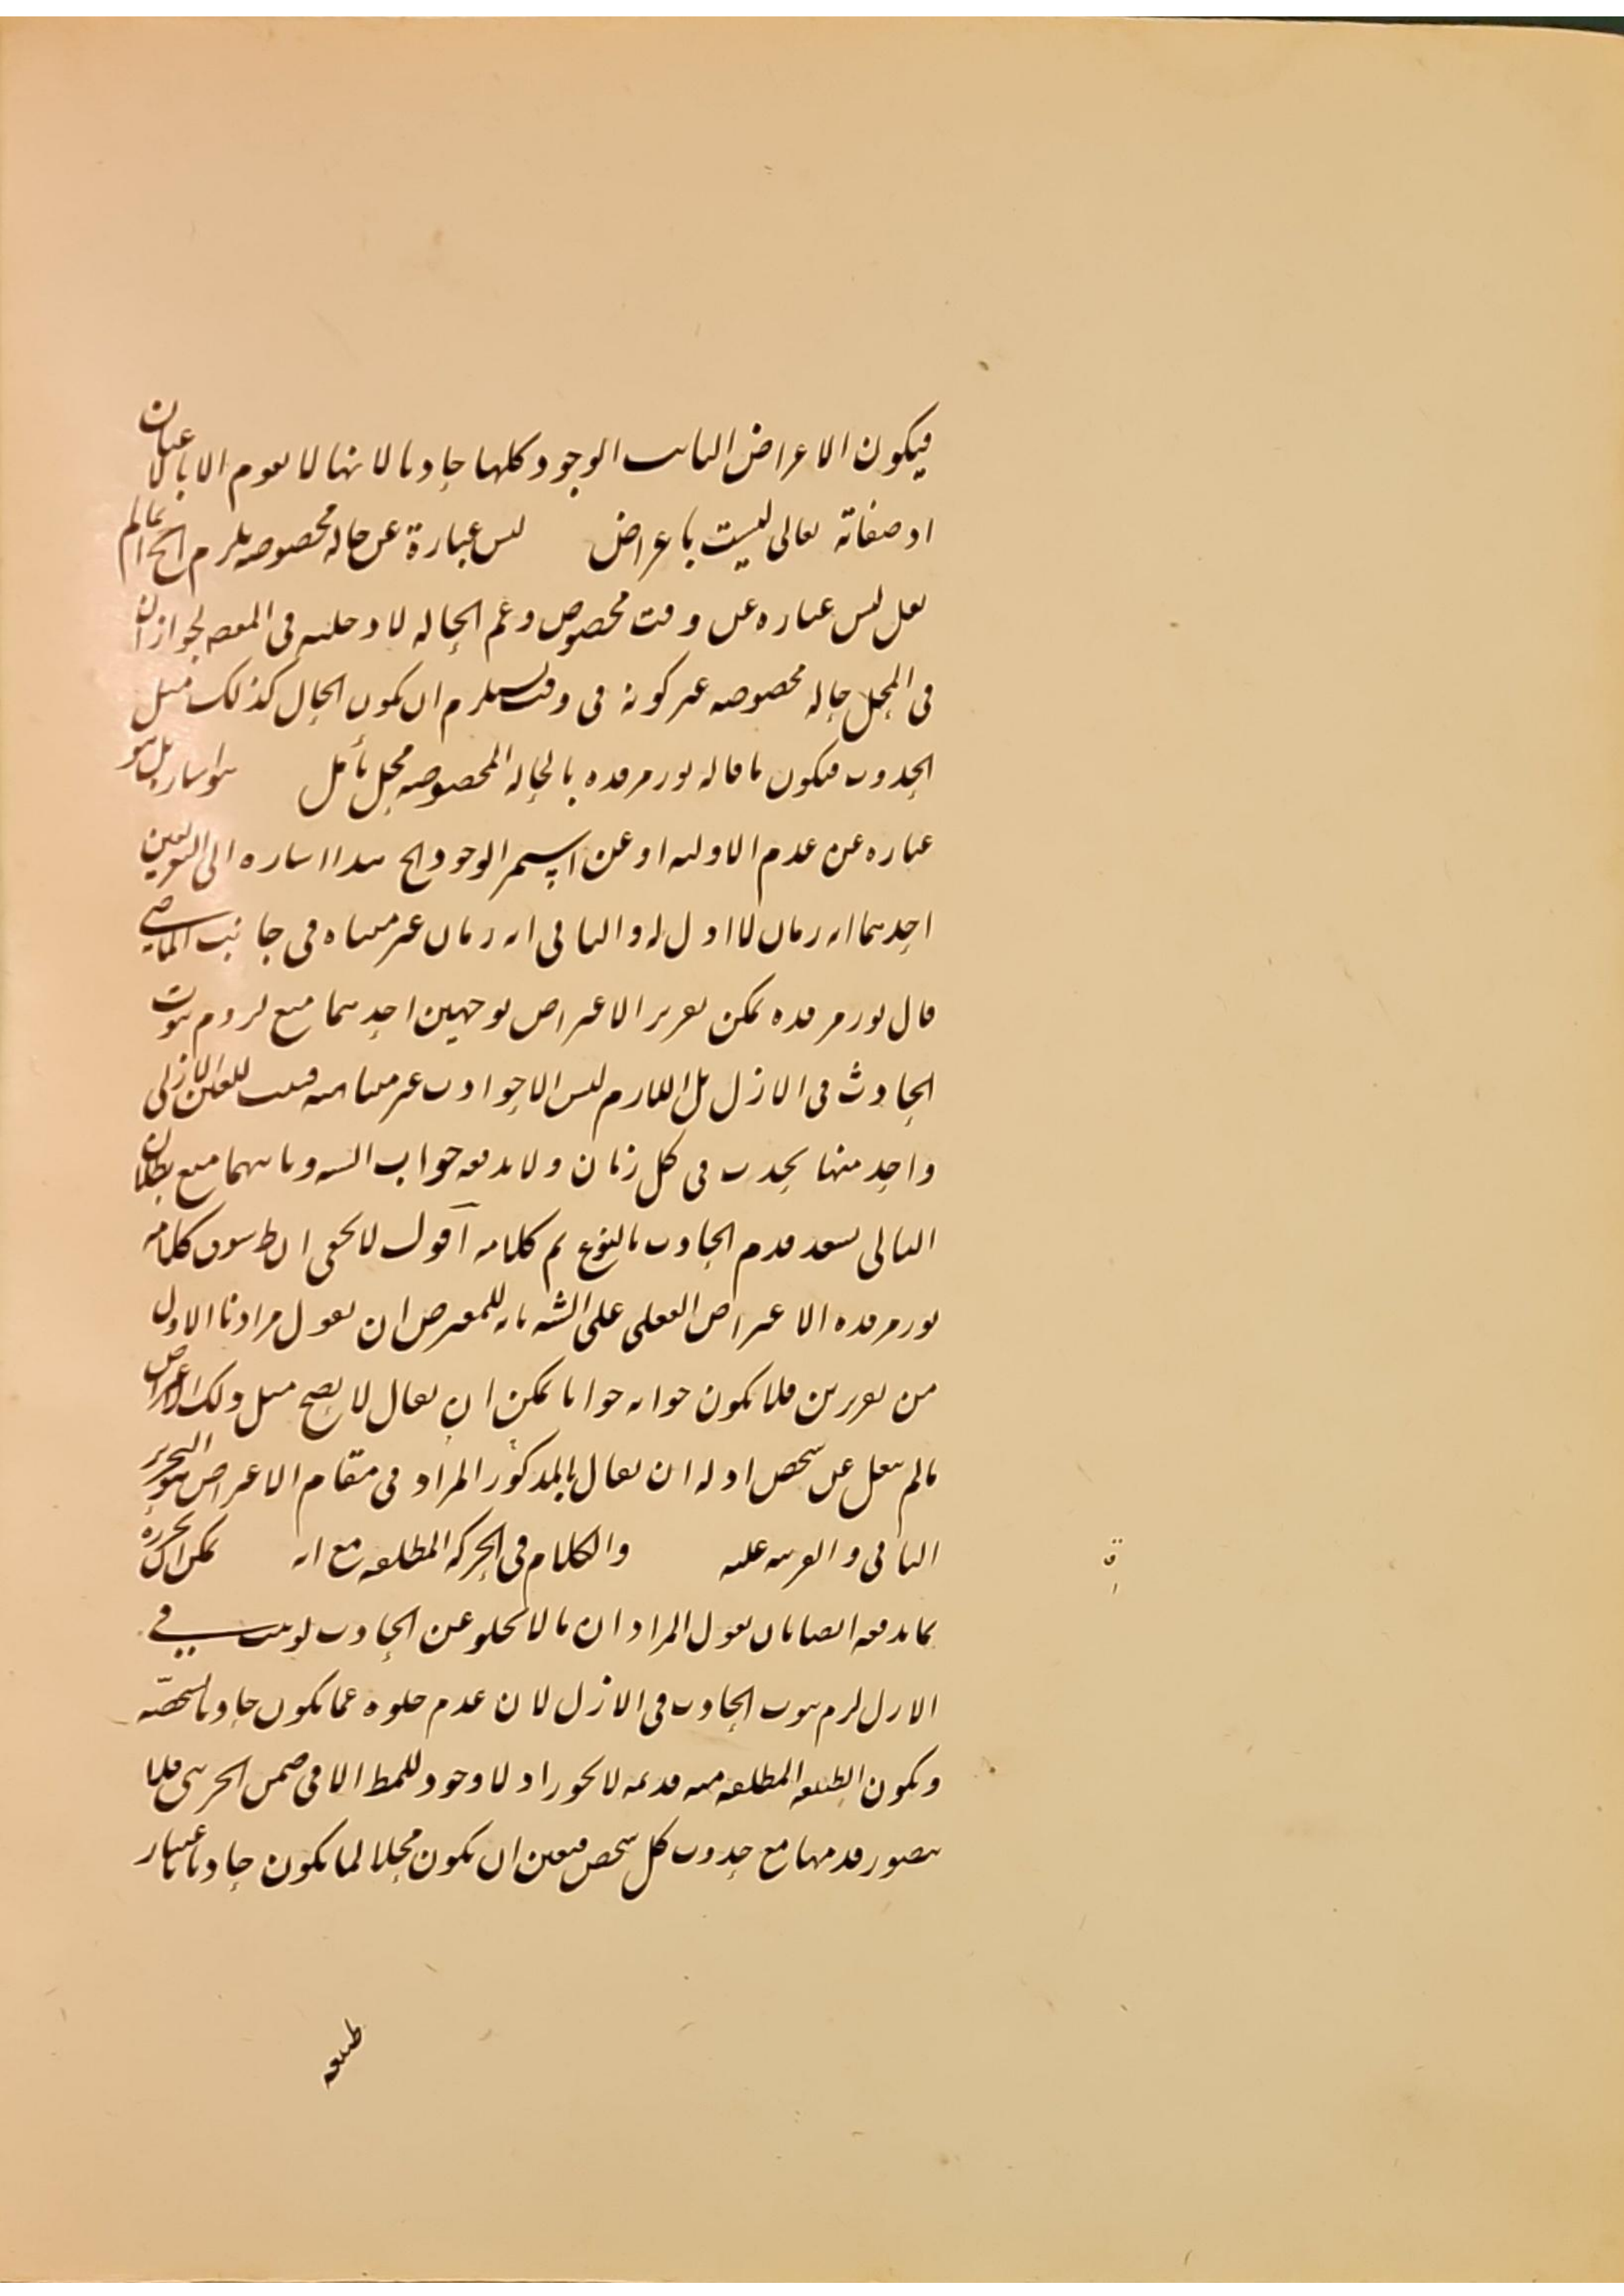 فيكون الاعراض الثابت الوجود كلها حادثا لانها لا يقوم الا بالاعيان
اذ صفاته تعالى ليست باعراض ليس عبارة عن حالة مخصوصة يلزم الخ انما لم
يقل ليس عبارة عن وقت مخصوص وعم الحالة لا دخلية في المقصد لجواز ان
في المحل حالة مخصوصة غير كونه في وقت يستلزم ان يكون الحال كذلك مثل
الحدوث فيكون ما قاله نور مرقده بالحالة المخصوصة محل تأمل هو اشار بل هو
عبارة عن عدم الاولية او عن استمرار الوجود الخ هذا اشارة الى التعريفين
احدهما انه زمان لا اول له والثاني انه زمان غير متناه في جانب الماضي
قال نور مرقده يمكن تقرير الاعتراض بوجهين احدهما منع لزوم ثبوت
الحادث في الازل بل اللازم ليس الا حوادث غير متناهية فيثبت للعين الازلي
واحد منها يحدث في كل زمان ولا يدفعه جواب الشه وثانيهما منع بطلان
التالي بسند قدم الحادث بالنوع تم كلامه اقول لا يخفى ان ظ سوق كلامه
نور مرقده الاعتراض الفعلي على الشه بانه للمعترض ان يقول مرادنا الاول
من تقريرين فلا يكون جوابه جوابا يمكن ان يقال لا يصح مثل ذلك الاعتراض
مالم ينقل عن شخص اوله ان يقال بالمذكور المراد في مقام الاعتراض هو التحرير
الثاني والقرينة عليه والكلام في الحركة المطلقة مع انه يمكن ان يحرره
بما يدفعه ايضا بان يقول المراد ان ما لا يخلو عن الحادث لو ثبت في
الازل لزم ثبوت الحادث في الازل لان عدم خلوه عما يكون حادثا بشخصه
ويكون الطبيعة المطلقة منه قديمة لا يجوز اذ لا وجود للمط الا في ضمن الجزئي فلا
يتصور قدمها مع حدوث كل شخص فتعين ان يكون محلا لما يكون حادثا باعتبار
طبيعة